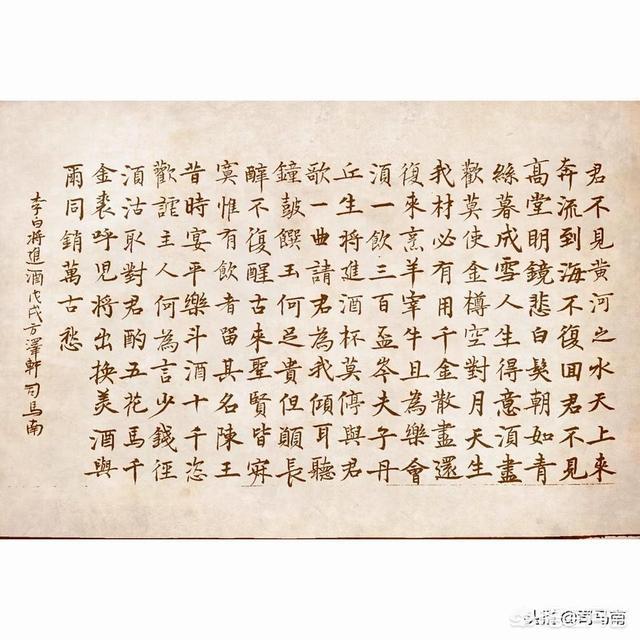 君不見黃河之水天上來
奔流到海不復回君不見
高堂明鏡悲白髮朝如青
絲暮成雪人生得意湏盡
歡莫使金樽空對月天生
我材必有用千金散盡還
復來烹羊宰牛且為樂會
湏一飲三百盃岑夫子丹
丘生將進酒杯莫停與君
歌一曲請君為我傾耳聽
鐘皷饌玉何足貴但願長
醉不復醒古來聖賢皆寂
寞惟有飲者留其名陳王
昔時宴平樂斗酒十千恣
歡謔主人何為言少錢徑
湏沽取對君酌五花馬千
金裘呼兒將出換美酒與
爾同銷萬古愁
李白將進酒戊戌方澤軒司馬南
头条 @司马南